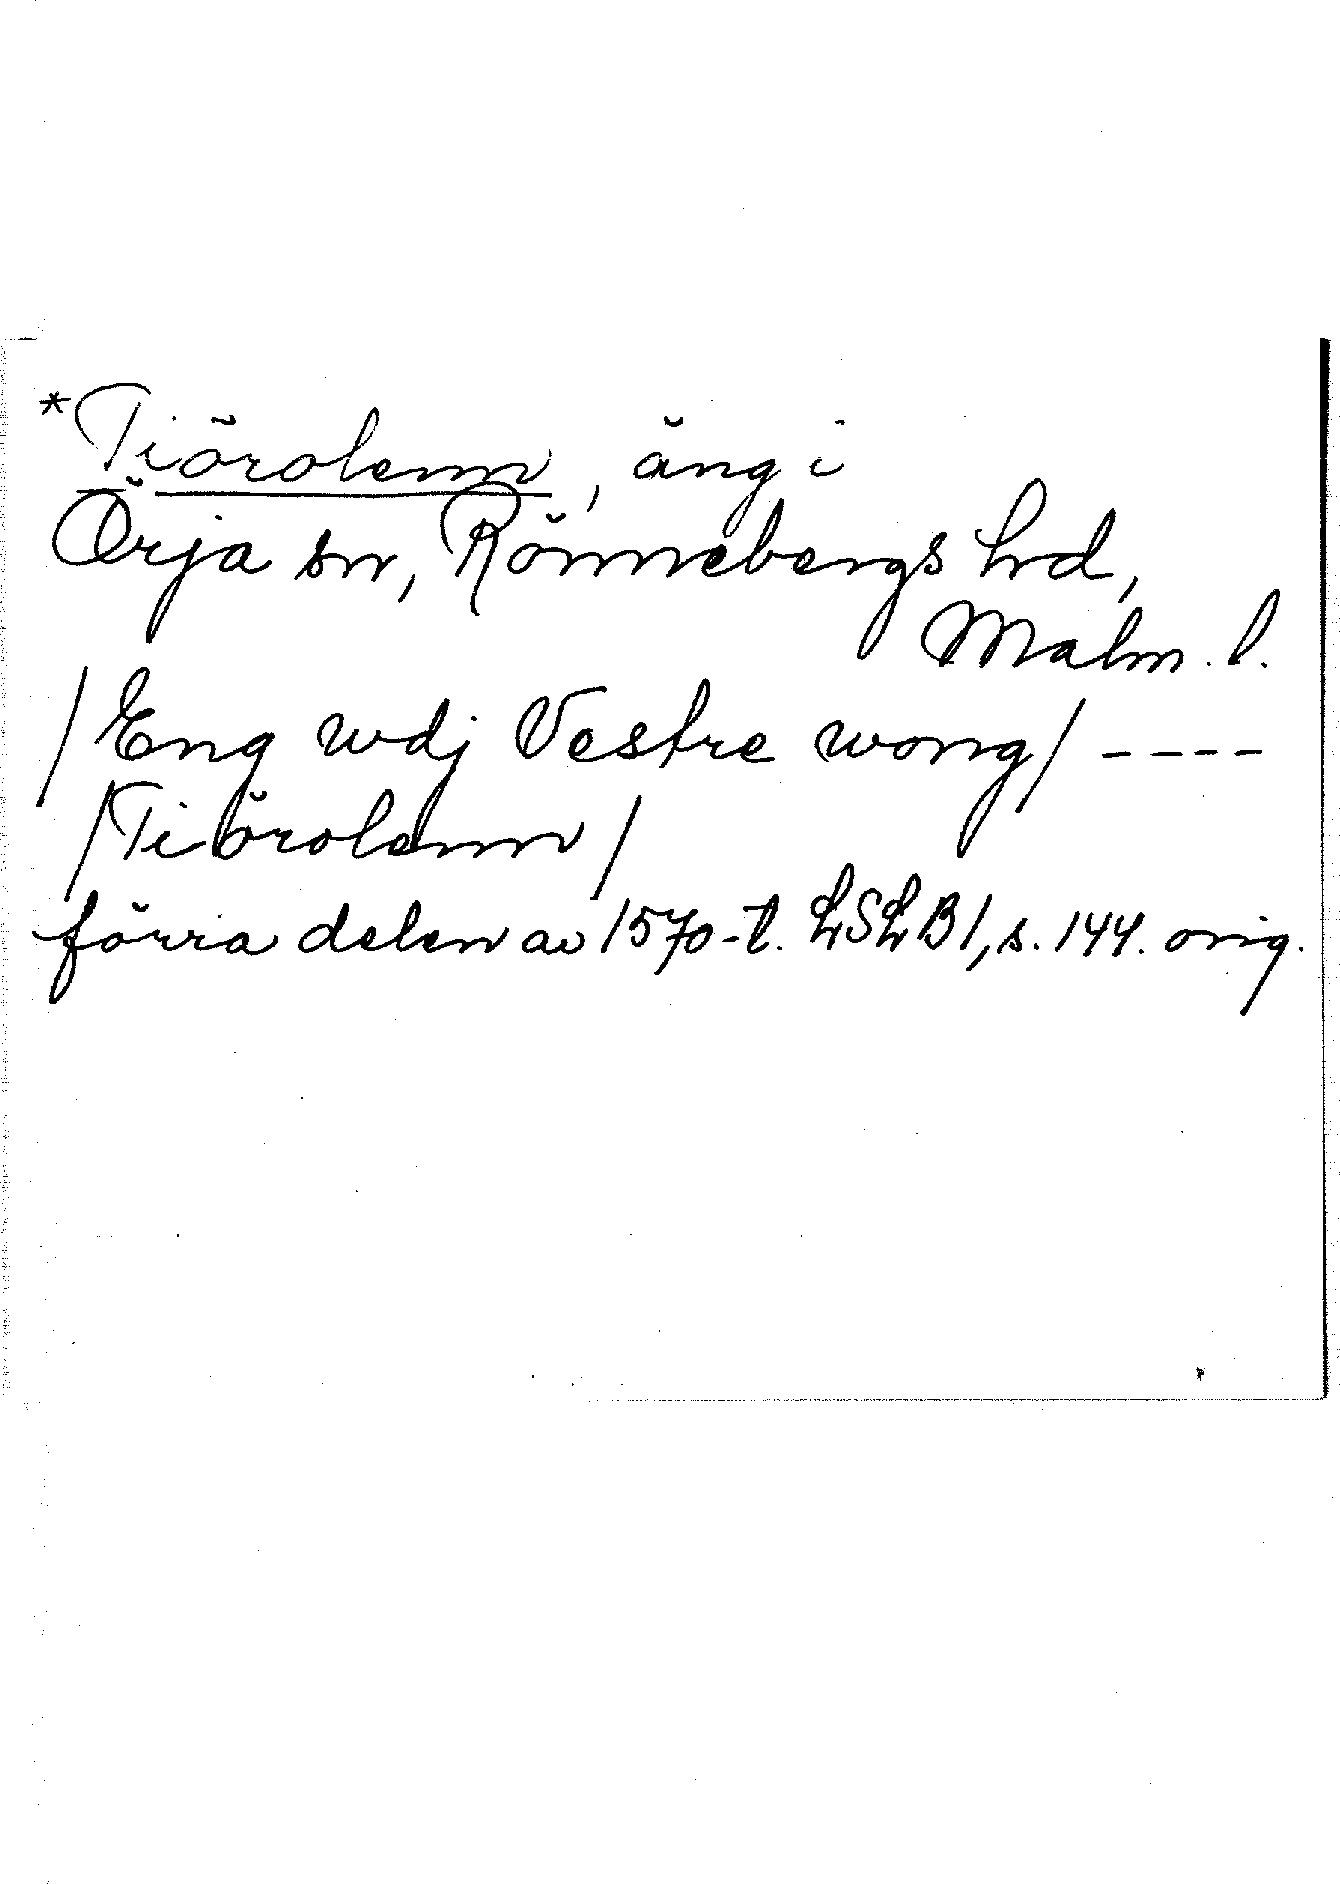 *Tiörolenn, äng i
Örja sn, Rönnebergs hrd,
Malm. l.
/Eng wdj Vestre wong/ ----
/Tiörolenn/
förra delen av 1570-t. LSLB1, s. 144. orig.